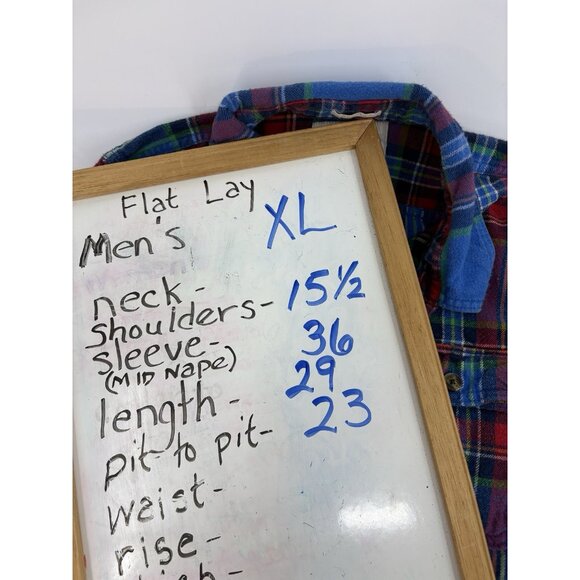 Flat Lay
Men's XL
neck -
shoulders - 15 1/2
sleeve - 36
(MID NAPE)
length - 29
pit to pit - 23
waist -
rise -